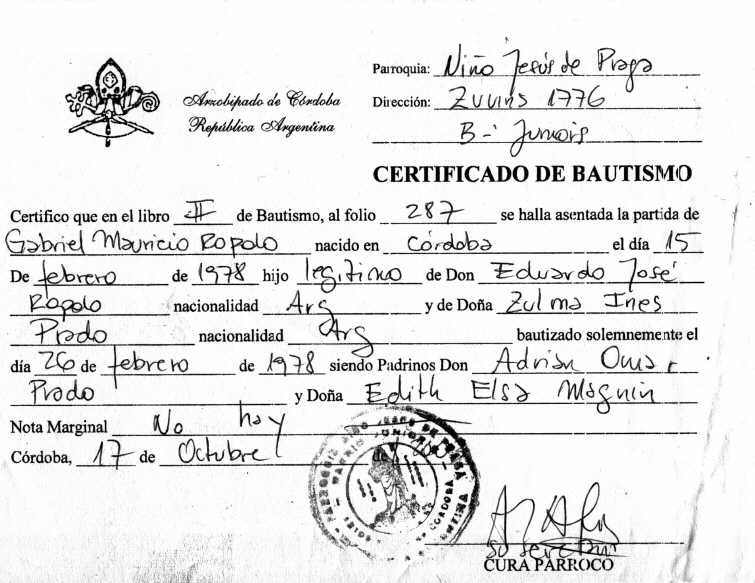 Arzobispado de Córdoba
República Argentina
Parroquia: Niño Jesús de Praga
Dirección: 1776
B- Juniors
CERTIFICADO DE BAUTISMO
Certifico que en el libro II de Bautismo, al folio 287 se halla asentada la partida de
Gabriel Mauricio Ropolo nacido en Córdoba el día 15
De febrero de 1978 hijo legítimo de Don Eduardo José
Ropolo nacionalidad Arg y de Doña Zulma Ines
Prado nacionalidad Arg bautizado solemnemente el
día 26 de febrero de 1978 siendo Padrinos Don Adrián Omar
Prado y Doña Edith Elsa Magnin
Nota Marginal No hay
Córdoba, 17 de Octubre de
CURA PARROCO